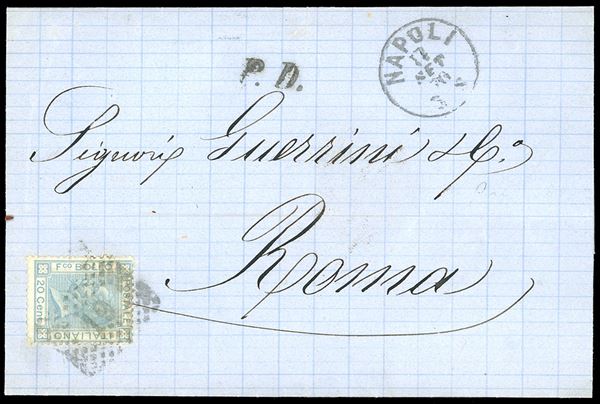 NAPOLI
P. D.
Signori Guerrini & Co.
Roma
Fco BOLLO
20 Cent
POSTALE
ITALIANO